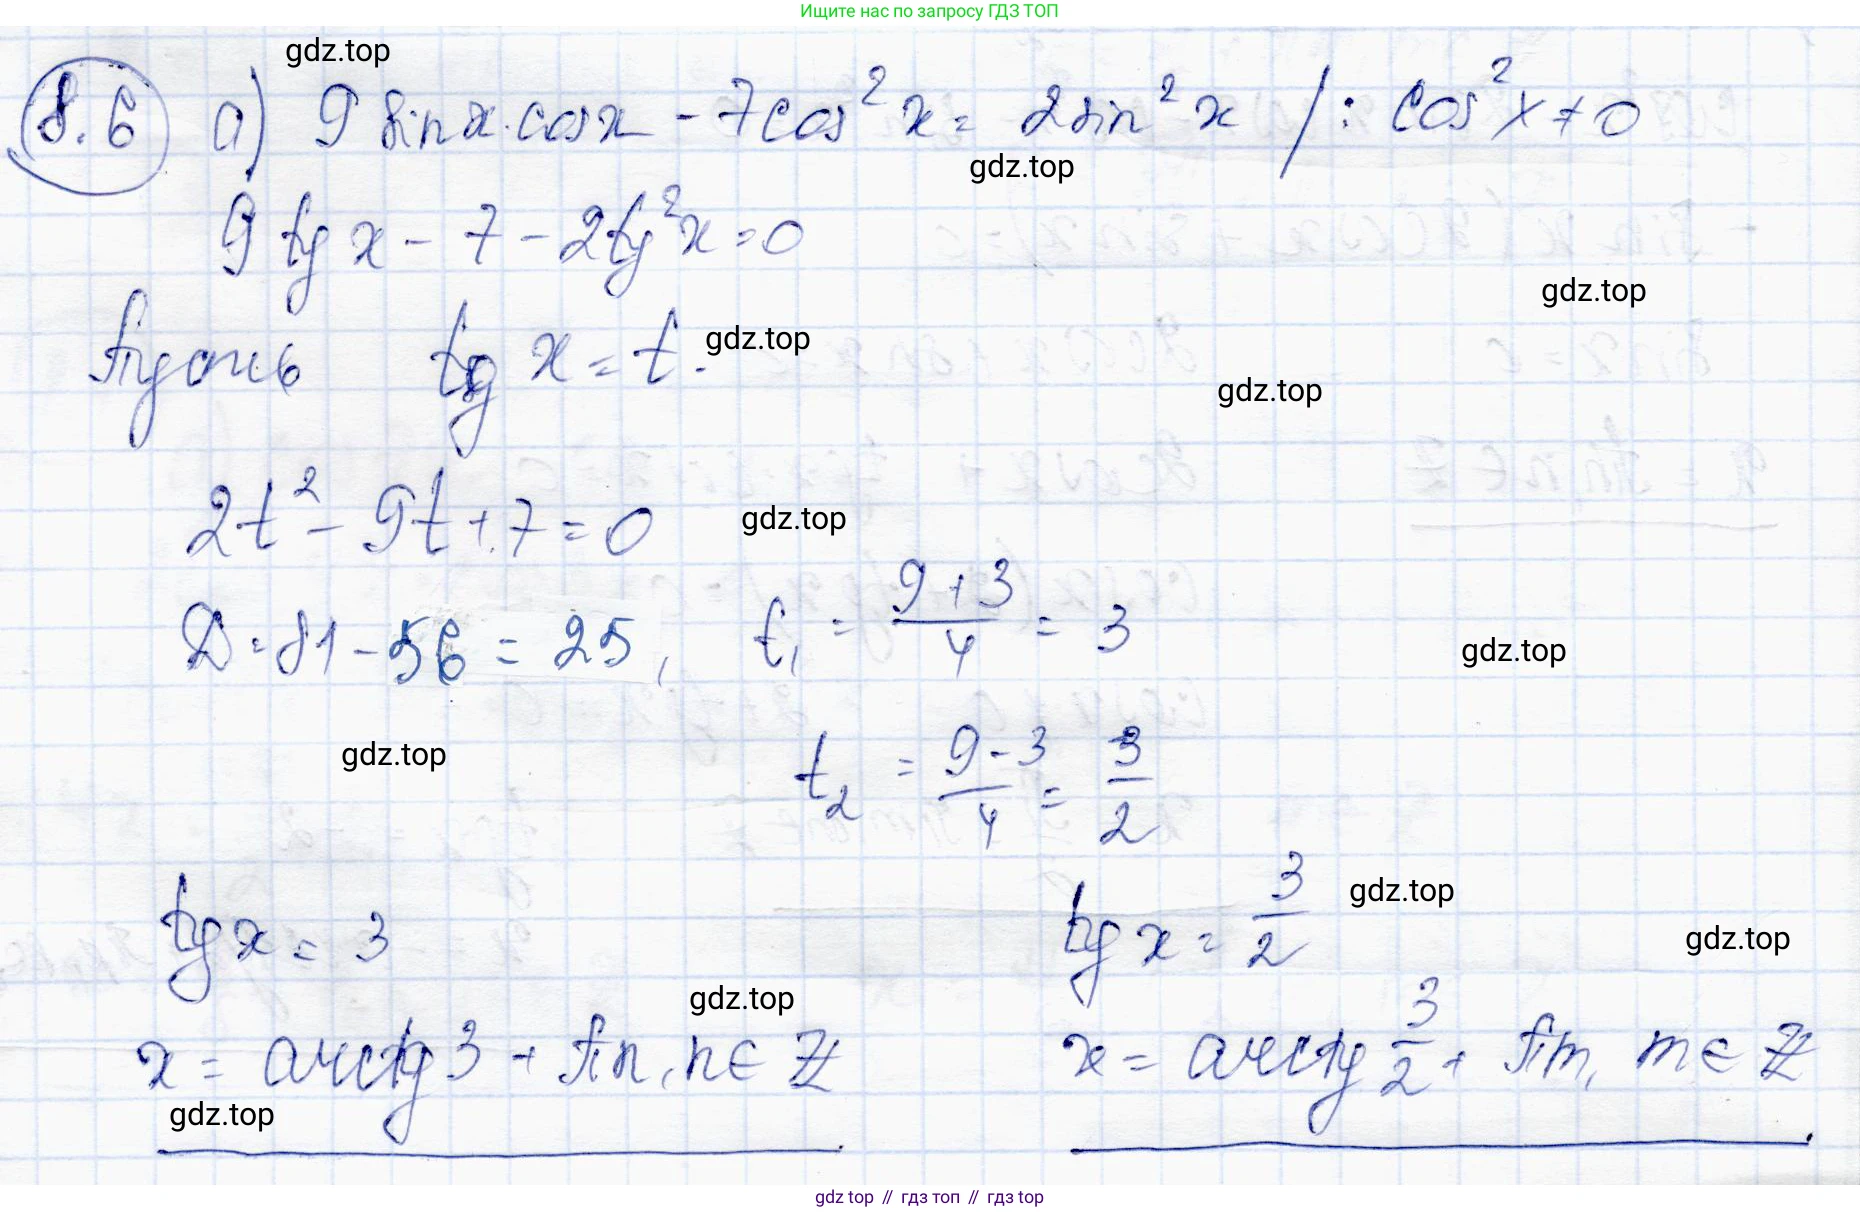 Ищите нас по запросу ГДЗ ТОП
gdz.top
8.6 а) 9 sin x · cos x - 7 cos² x = 2 sin² x / : cos² x ≠ 0
gdz.top
9 tg x - 7 - 2 tg² x = 0
gdz.top
Пусть tg x = t.
gdz.top
gdz.top
2t² - 9t + 7 = 0
gdz.top
D = 81 - 56 = 25, t₁ = (9 + 3)/4 = 3
gdz.top
gdz.top
t₂ = (9 - 3)/4 = 3/2
tg x = 3 tg x = 3/2
gdz.top
gdz.top
gdz.top
x = arctg 3 + πn, n ∈ Z x = arctg 3/2 + πm, m ∈ Z
gdz.top
gdz top // гдз топ // гдз top